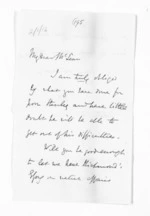 My dear McLean
I am truly obliged
by what you have done for
poor and have little
doubt he will be able to
get out of his difficulties.
Will you be good enough
to let me have
on native affairs